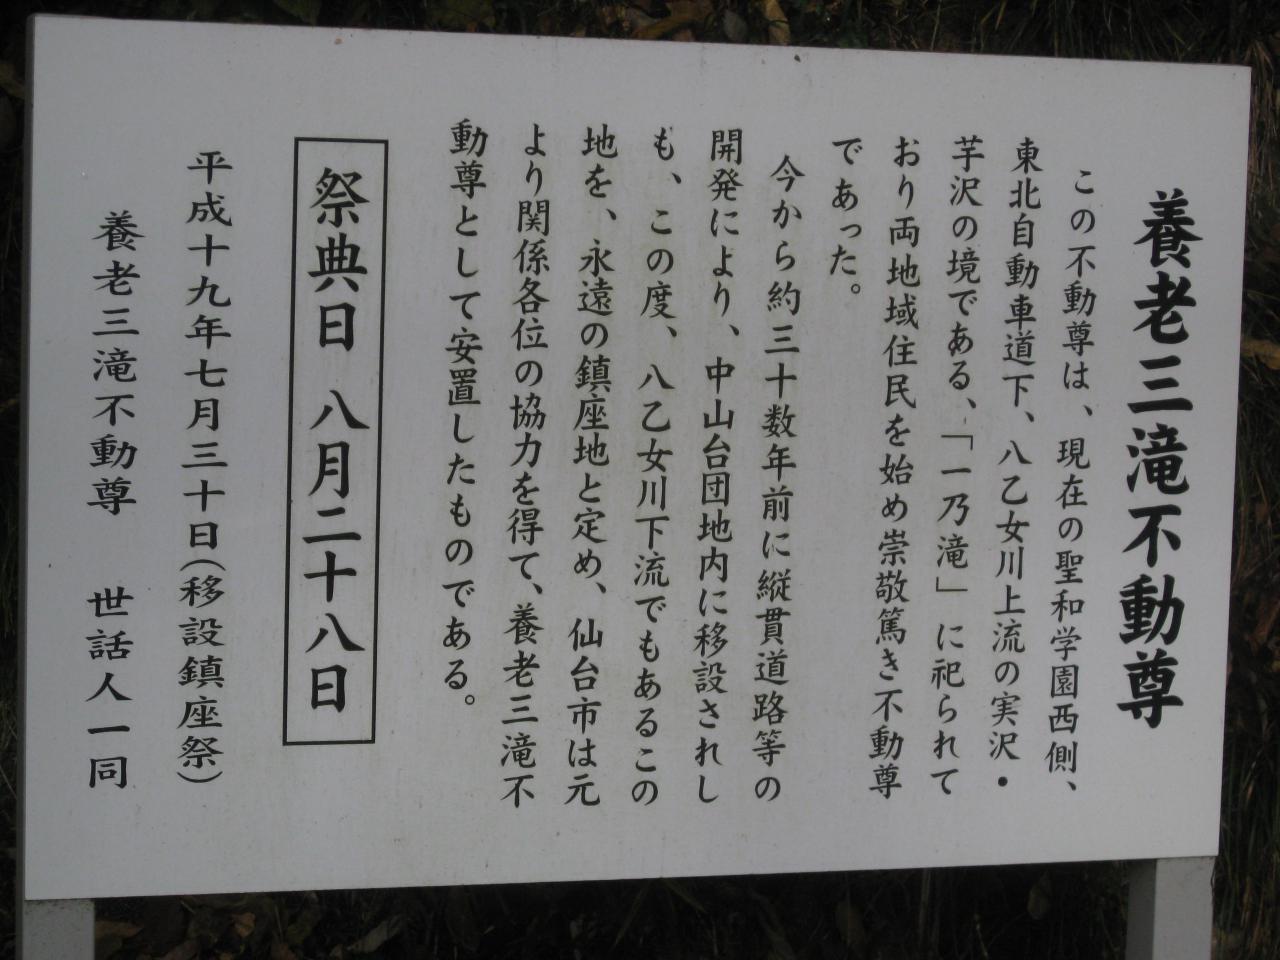 養老三滝不動尊
この不動尊は、現在の聖和学園西側、
東北自動車道下、八乙女川上流の実沢・
芋沢の境である、「一乃滝」に祀られて
おり両地域住民を始め崇敬篤き不動尊
であった。
今から約三十数年前に縦貫道路等の
開発により、中山台団地内に移設されし
も、この度、八乙女川下流でもあるこの
地を、永遠の鎮座地と定め、仙台市は元
より関係各位の協力を得て、養老三滝不
動尊として安置したものである。
祭典日 八月二十八日
平成十九年七月三十日(移設鎮座祭)
養老三滝不動尊 世話人一同